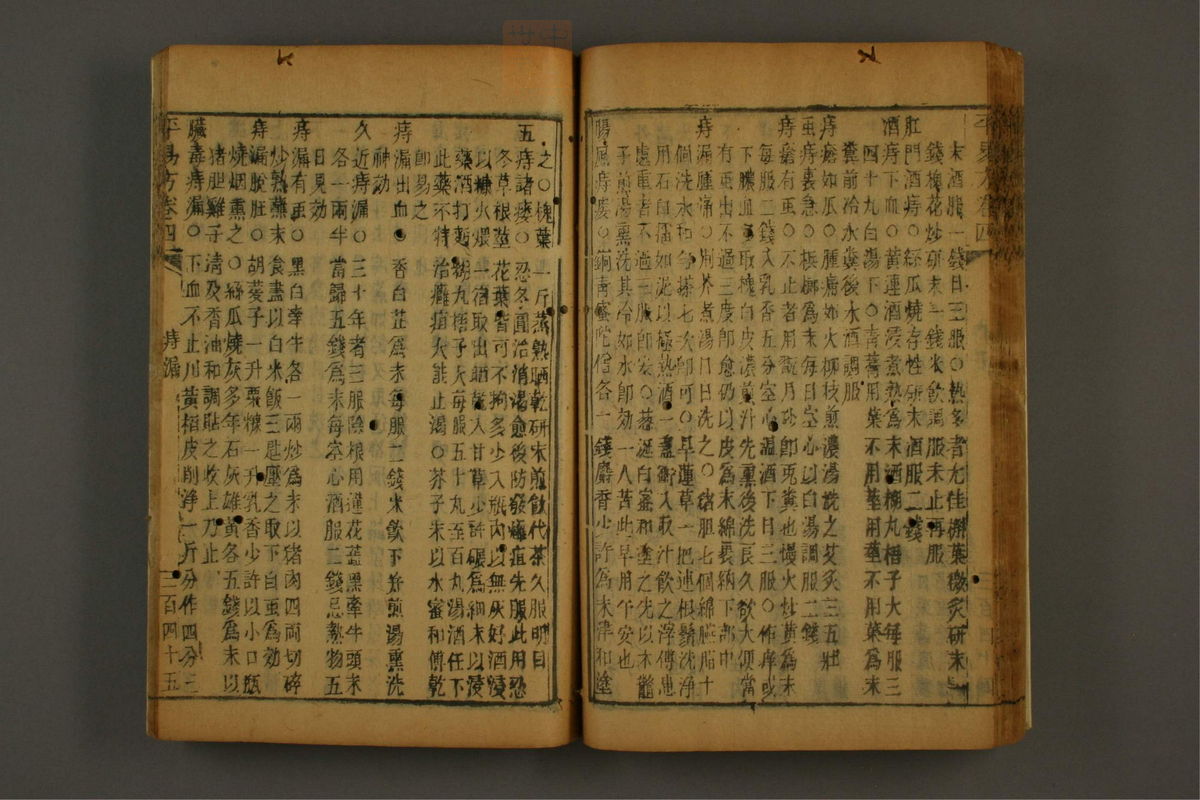 末酒服一錢日三服○熱多者尤佳槲葉微炙研末
錢槐花炒研末一錢米飲調服未止再服
肛門酒痔○絲瓜燒存性研末酒服二錢
酒痔下血○黃連酒浸煮熟爲末酒糊丸梧子大每服三
四十九白湯下○青蒿用葉不用莖用莖不用葉爲末
糞前冷水糞後水酒調服
痔瘡如瓜○腫痛如火柳枝煎濃湯洗之艾灸三五壯
虫痔裏急○檳榔爲末每日空心以白湯調服二錢
痔瘡有虫○不止者用 乃 即兎糞也慢火炒黃爲末
每服二錢入乳香五分空心溫酒下日三服○作痒或
下膿血多取槐白皮濃煎汁先熏後洗良久欲大便當
有虫出不過三度即愈仍以皮爲末綿裹納下部中
痔漏腫痛○ 芥煮湯日日洗之○猪胆七個綿胭脂十
個洗水和勻搽七次即可○旱蓮草一把連根鬚洗淨
用石臼擂如泥以極熱酒一盞衝入取汁飲之滓傅患
處重者不過三服即安○葱涎白蜜和塗之先以木鱉
子煎湯熏洗其冷如水即効一人苦此早用午安也
腸風痔瘻○銅青蜜陀僧各一錢麝香少許爲末津和塗
之○槐葉一斤蒸熟晒乾研末煎飲代茶久服明目
五痔諸瘻○忍冬圓治消渴愈後防發癰疽先服此用忍
冬草根莖花葉皆可不拘多少入瓶內以無灰好酒浸
以糠火煨一宿取出晒乾入甘草少許碾爲細末以浸
藥酒打麪糊丸梧子大每服五十丸至百丸湯酒任下
此藥不特治癰疽大能止渴○芥子末以水蜜和傅乾
即易之
痔漏出血○香白芷爲末每服二錢米飲下并煎湯熏洗
神効
久近痔漏○三十年者三服除根用蓮花蕊黑牽牛頭末
各一兩半當歸五錢爲末每空心酒服二錢忌熱物五
日見効
痔漏有虫○黑白牽牛各一兩炒爲末以猪肉四兩切碎
炒熟蘸末食盡以白米飯三匙壓之取下白虫爲効
痔漏脫肛○胡荽子一升粟糠一升乳香少許以小口瓶
燒烟熏之○絲瓜燒灰多年石灰雄黃各五錢爲末以
猪胆雞子清及香油和調貼之收上乃止
臟毒痔漏○下血不止川黃栢皮削淨一斤分作四分三
平易方卷四 痔漏 三百四十五